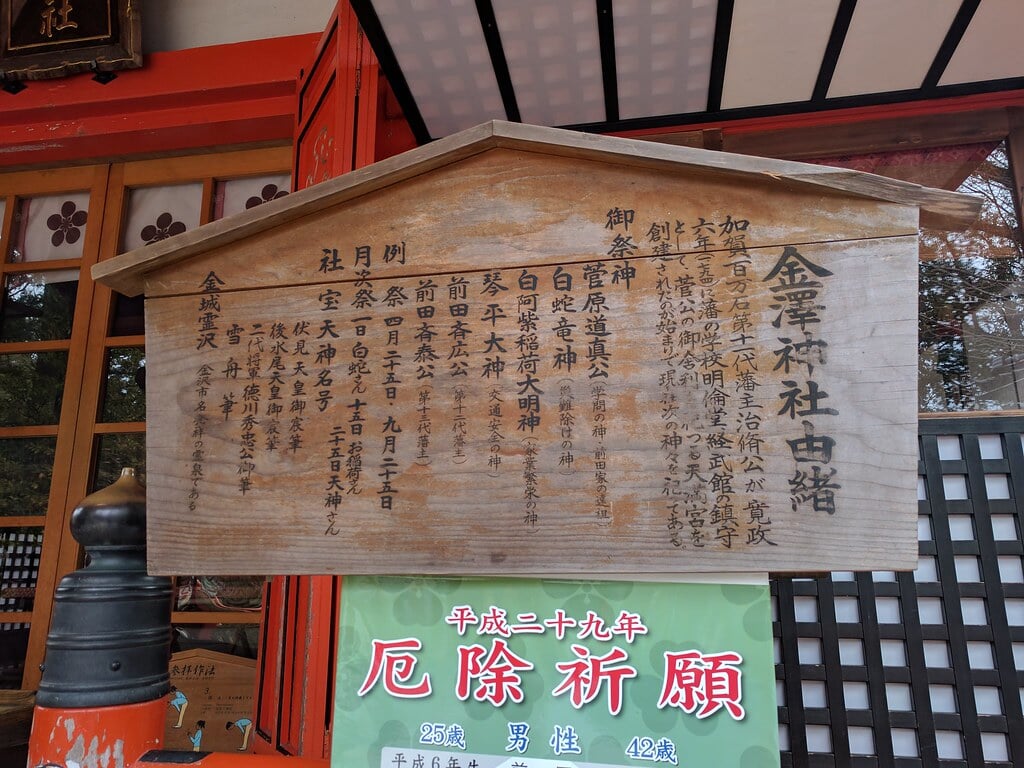 社
金澤神社由緒
加賀百万石第十一代藩主治脩公が寛政
六年(一七九四)に藩の学校明倫堂経武館の鎮守
として、菅公の御舎利 つる天満宮を
創建されたのが始まりで現在次の神々を祀てある。
御祭神
菅原道真公(学問の神・前田家の遠祖)
白蛇竜神(災難除けの神)
白阿紫稲荷大明神(商業繁栄の神)
琴平大神(交通安全の神)
前田斉広公(第十二代藩主)
前田斉泰公(第十三代藩主)
例祭 四月二十五日・九月二十五日
月次祭 一日白蛇さん 十五日お稲荷さん
二十五日天神さん
社宝 天神名号
伏見天皇御宸筆
後水尾天皇御宸筆
二代将軍徳川秀忠公御筆
雪舟筆
金城霊沢 金沢市名発祥の霊泉である
平成二十九年
厄除祈願
25歳 男性 42歳
平成6年生
参拝作法